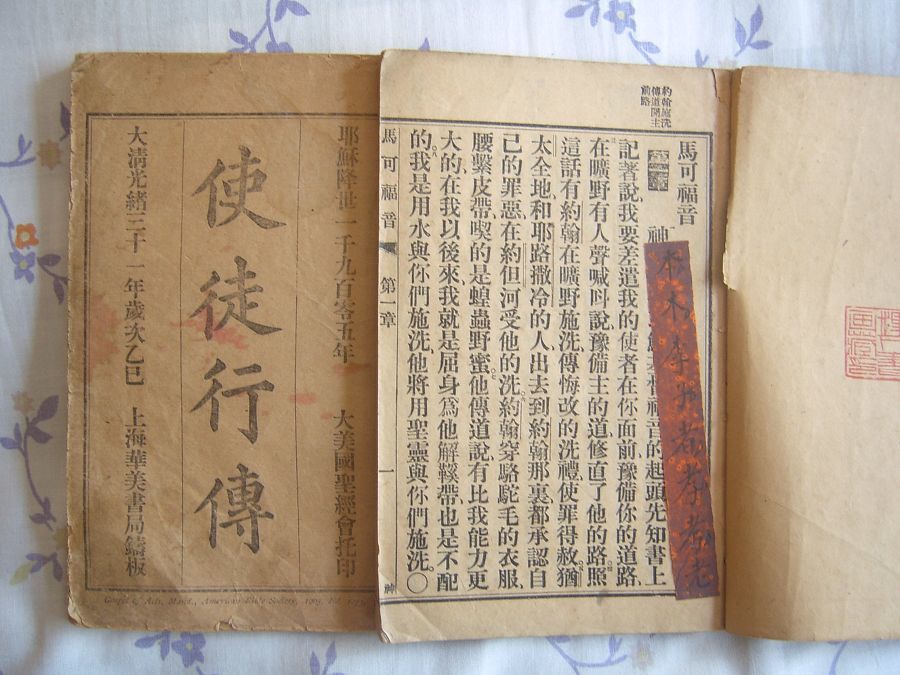 耶穌降世一千九百零五年 大美國聖經會托印
使徒行傳
大清光緒三十一年歲次乙巳 上海華美書局鑄板
Gospel of Acts, Mand., American Bible Society, 1905.
約翰施洗
傳道開主
前路
馬可福音
第一章 神 福音的起頭先知書上
記著說、我要差遣我的使者在你面前、豫備你的道路、
在曠野有人聲喊叫說、豫備主的道、修直了他的路、照
這話有約翰在曠野施洗、傳悔改的洗禮、使罪得赦、猶
太全地、和耶路撒冷的人、出去到約翰那裏、都承認自
己的罪惡、在約但河受他的洗、約翰穿駱駝毛的衣服、
腰繫皮帶、喫的是蝗蟲野蜜、他傳道說、有比我能力更
大的、在我以後來、我就是屈身爲他解鞋帶、也是不配
的、我是用水與你們施洗、他將用聖靈與你們施洗。〇
馬可福音 第一章 一 神